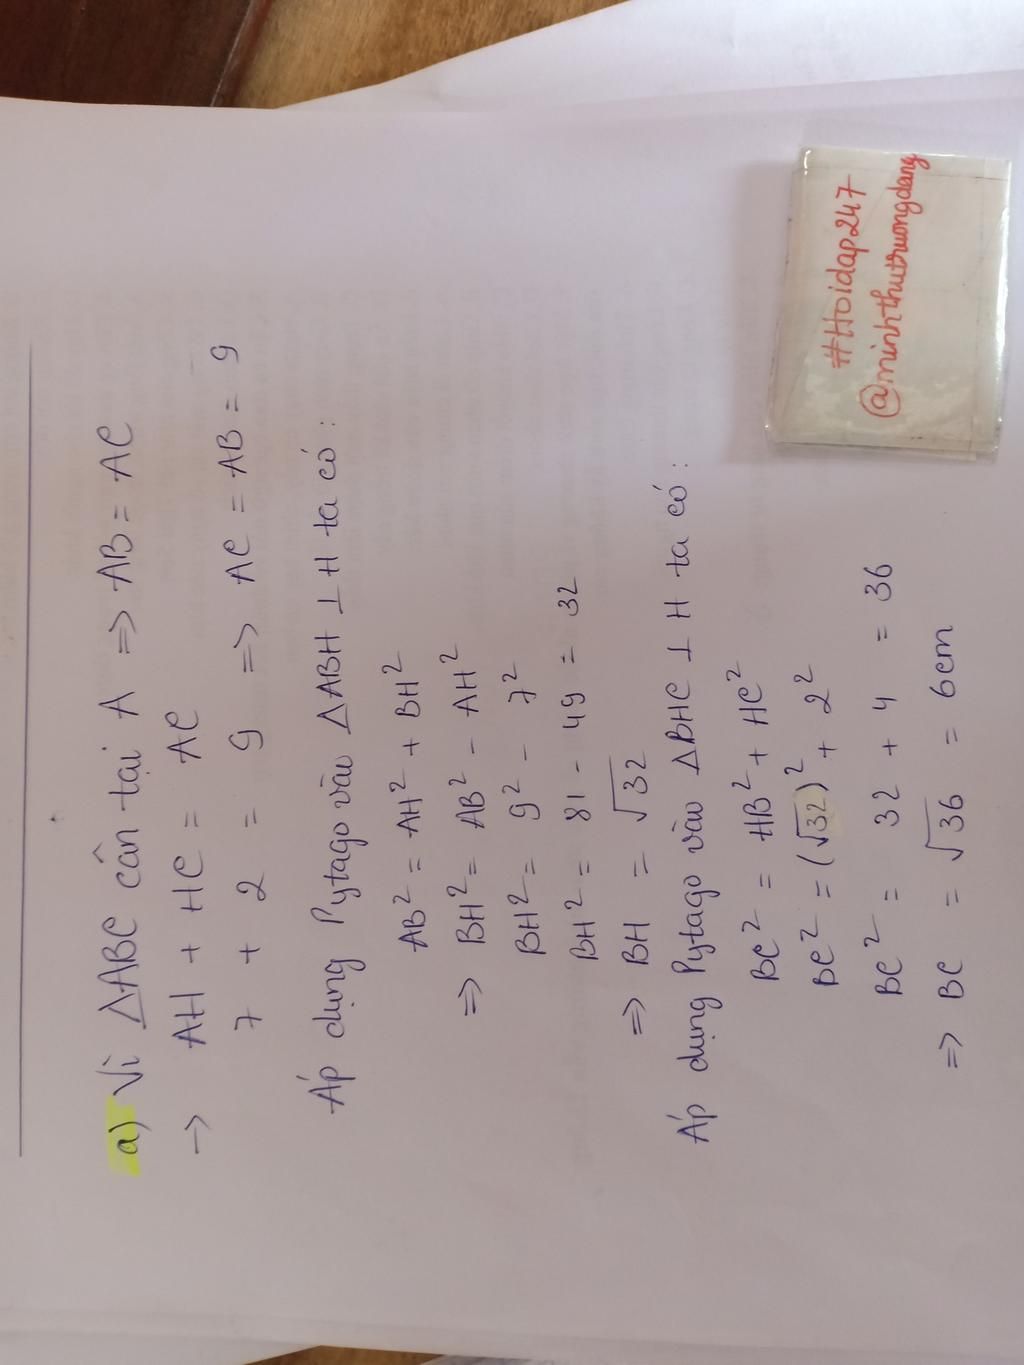 a) Vì △ABC cân tại A => AB = AC
-> AH + HC = AC
7 + 2 = 9 => AC = AB = 9
Áp dụng Pytago vào △ABH ⊥ H ta có :
AB² = AH² + BH²
=> BH² = AB² - AH²
BH² = 9² - 7²
BH² = 81 - 49 = 32
=> BH = √32
Áp dụng Pytago vào △BHC ⊥ H ta có :
BC² = HB² + HC²
BC² = (√32)² + 2²
BC² = 32 + 4 = 36
=> BC = √36 = 6cm
#Hoidap247
@minhthutruongdang